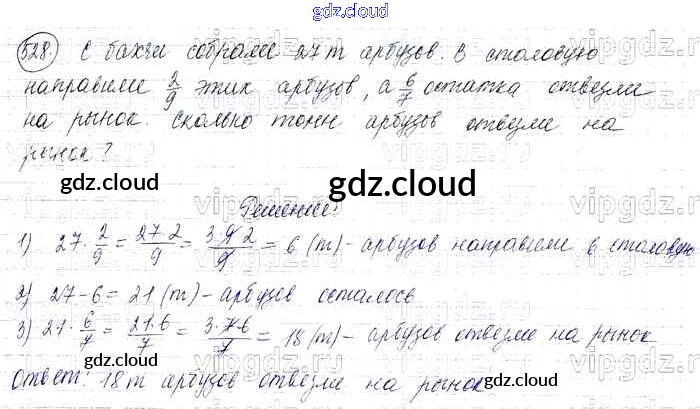 gdz.cloud
528. С бахчи собрали 27 т арбузов. В столовую
направили 2/9 этих арбузов, а 6/7 остатка отвезли
на рынок. Сколько тонн арбузов отвезли на
рынок?
gdz.cloud
gdz.cloud
Решение:
1) 27 · 2/9 = 27·2/9 = 3·9·2/9 = 6 (т) - арбузов направили в столовую
2) 27 - 6 = 21 (т) - арбузов осталось
3) 21 · 6/7 = 21·6/7 = 3·7·6/7 = 18 (т) - арбузов отвезли на рынок
gdz.cloud
Ответ: 18 т арбузов отвезли на рынок
gdz.cloud
vipgdz.ru